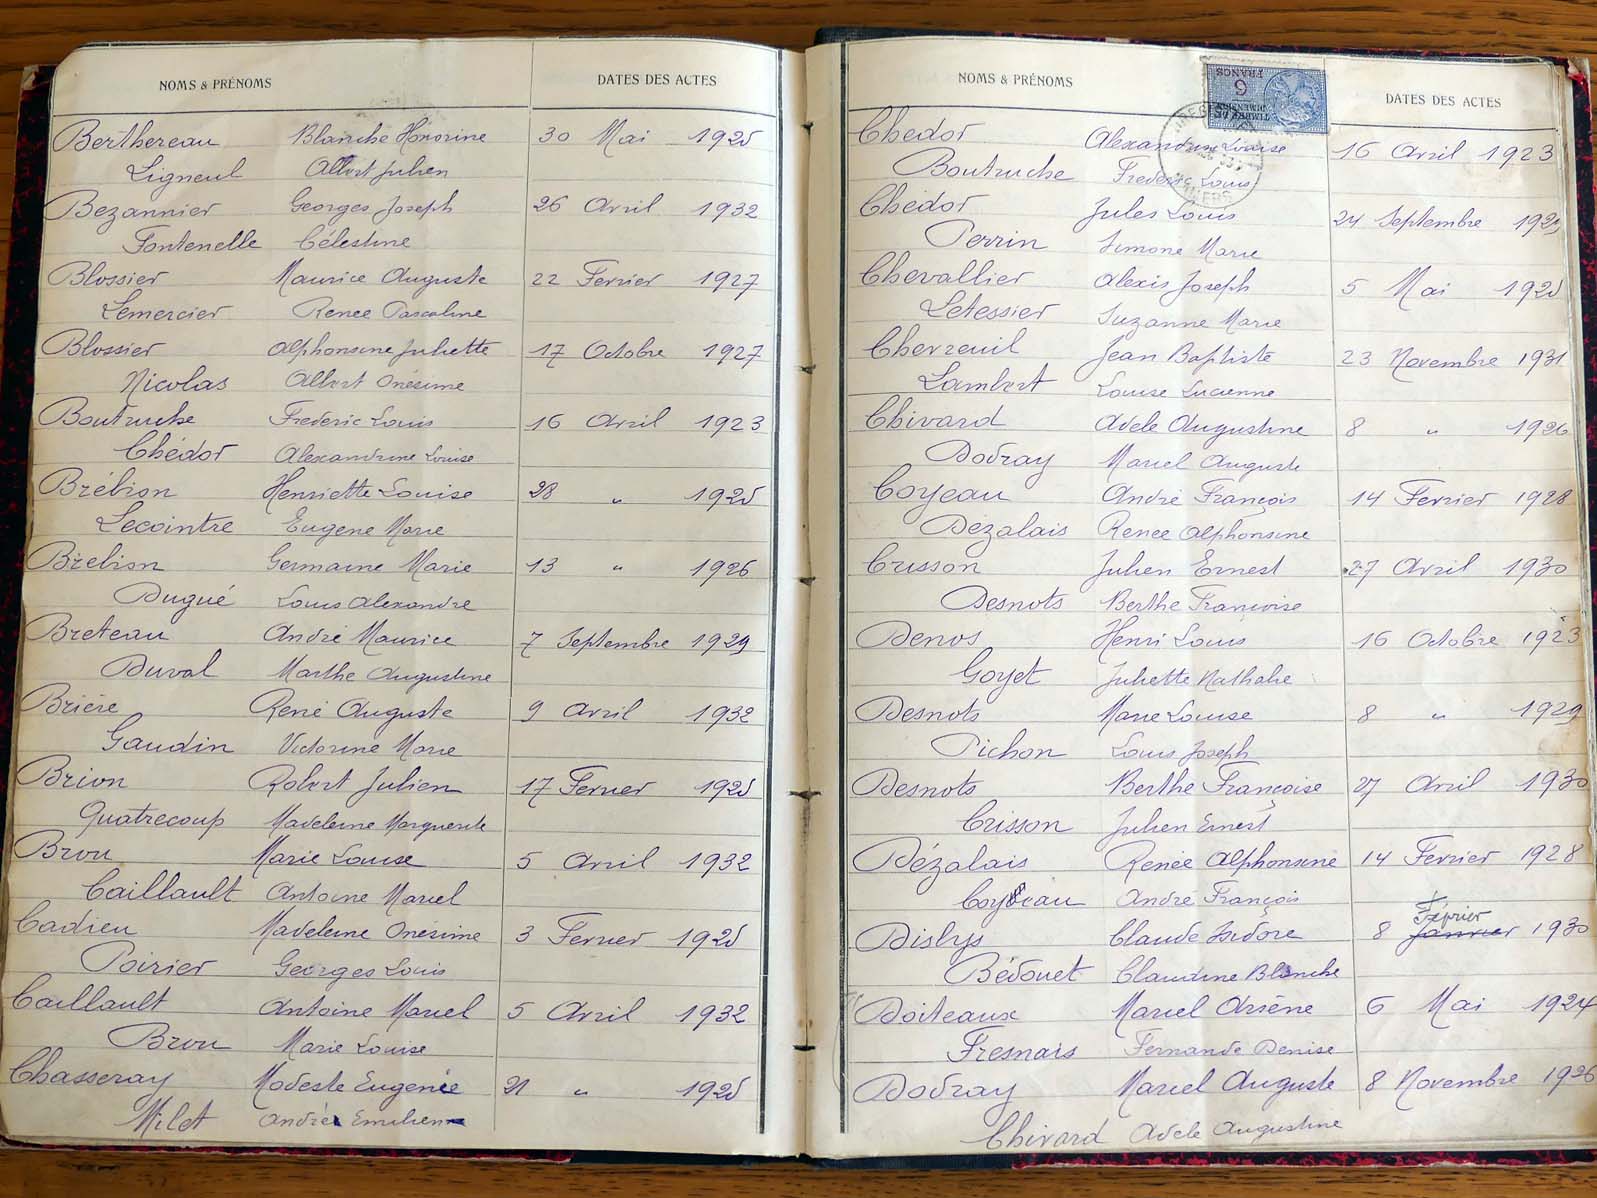 NOMS & PRÉNOMS DATES DES ACTES
Berthereau Blanche Honorine 30 Mai 1925
Ligneul Albert Julien
Bezannier Georges Joseph 26 Avril 1932
Fontenelle Célestine
Blossier Maurice Auguste 22 Fevrier 1927
Lemercier Renee Pascaline
Blossier Alphonsine Juliette 17 Octobre 1927
Nicolas Albert Onésime
Boutruche Frederic Louis 16 Avril 1923
Chédor Alexandrine Louise
Brébion Henriette Louise 28 " 1925
Lecointre Eugene Marie
Brebion Germaine Marie 13 " 1926
Dugué Louis Alexandre
Breteau André Maurice 7 Septembre 1929
Duval Marthe Augustine
Brière René Auguste 9 Avril 1932
Gaudin Victorine Marie
Brion Robert Julien 17 Fevrier 1925
Quatrecoup Madeleine Marguerite
Brou Marie Louise 5 Avril 1932
Caillault Antoine Marcel
Cadieu Madeleine Onésime 3 Fevrier 1925
Poirier Georges Louis
Caillault Antoine Marcel 5 Avril 1932
Brou Marie Louise
Chasseray Modeste Eugenie 21 " 1925
Milet André Emilien
NOMS & PRÉNOMS DATES DES ACTES
TIMBRE DE
DIMENSION
6
FRANCS
Chedor Alexandrine Louise 16 Avril 1923
Boutruche Frederic Louis
Chédor Jules Louis 24 Septembre 1929
Perrin Simone Marie
Chevallier Alexis Joseph 5 Mai 1925
Letessier Suzanne Marie
Chevreuil Jean Baptiste 23 Novembre 1931
Lambert Louise Lucienne
Chivard Adele Augustine 8 " 1926
Dodray Marcel Auguste
Coyeau André François 14 Fevrier 1928
Dézalais Renee Alphonsine
Crisson Julien Ernest 27 Avril 1930
Desnots Berthe Françoise
Denos Henri Louis 16 Octobre 1923
Goyet Juliette Nathalie
Desnots Marie Louise 8 " 1929
Pichon Louis Joseph
Desnots Berthe Françoise 27 Avril 1930
Crisson Julien Ernest
Dézalais Renée Alphonsine 14 Fevrier 1928
Coyeau André François
Février
Dislys Claude Isidore 8 Janvier 1930
Bédouet Claudine Blanche
Doiteaux Marcel Arsène 6 Mai 1924
Fresnais Fernande Denise
Dodray Marcel Auguste 8 Novembre 1926
Chivard Adele Augustine